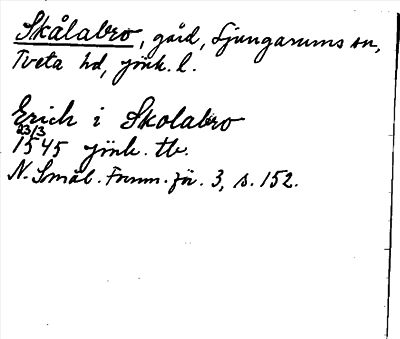 Skålabro, gård, Ljungarums sn,
Tveta hd, Jönk. l.
Erich i Skolabro
23/3
1545 Jönk. tb.
N. Smål. Fornm. för. 3, s. 152.